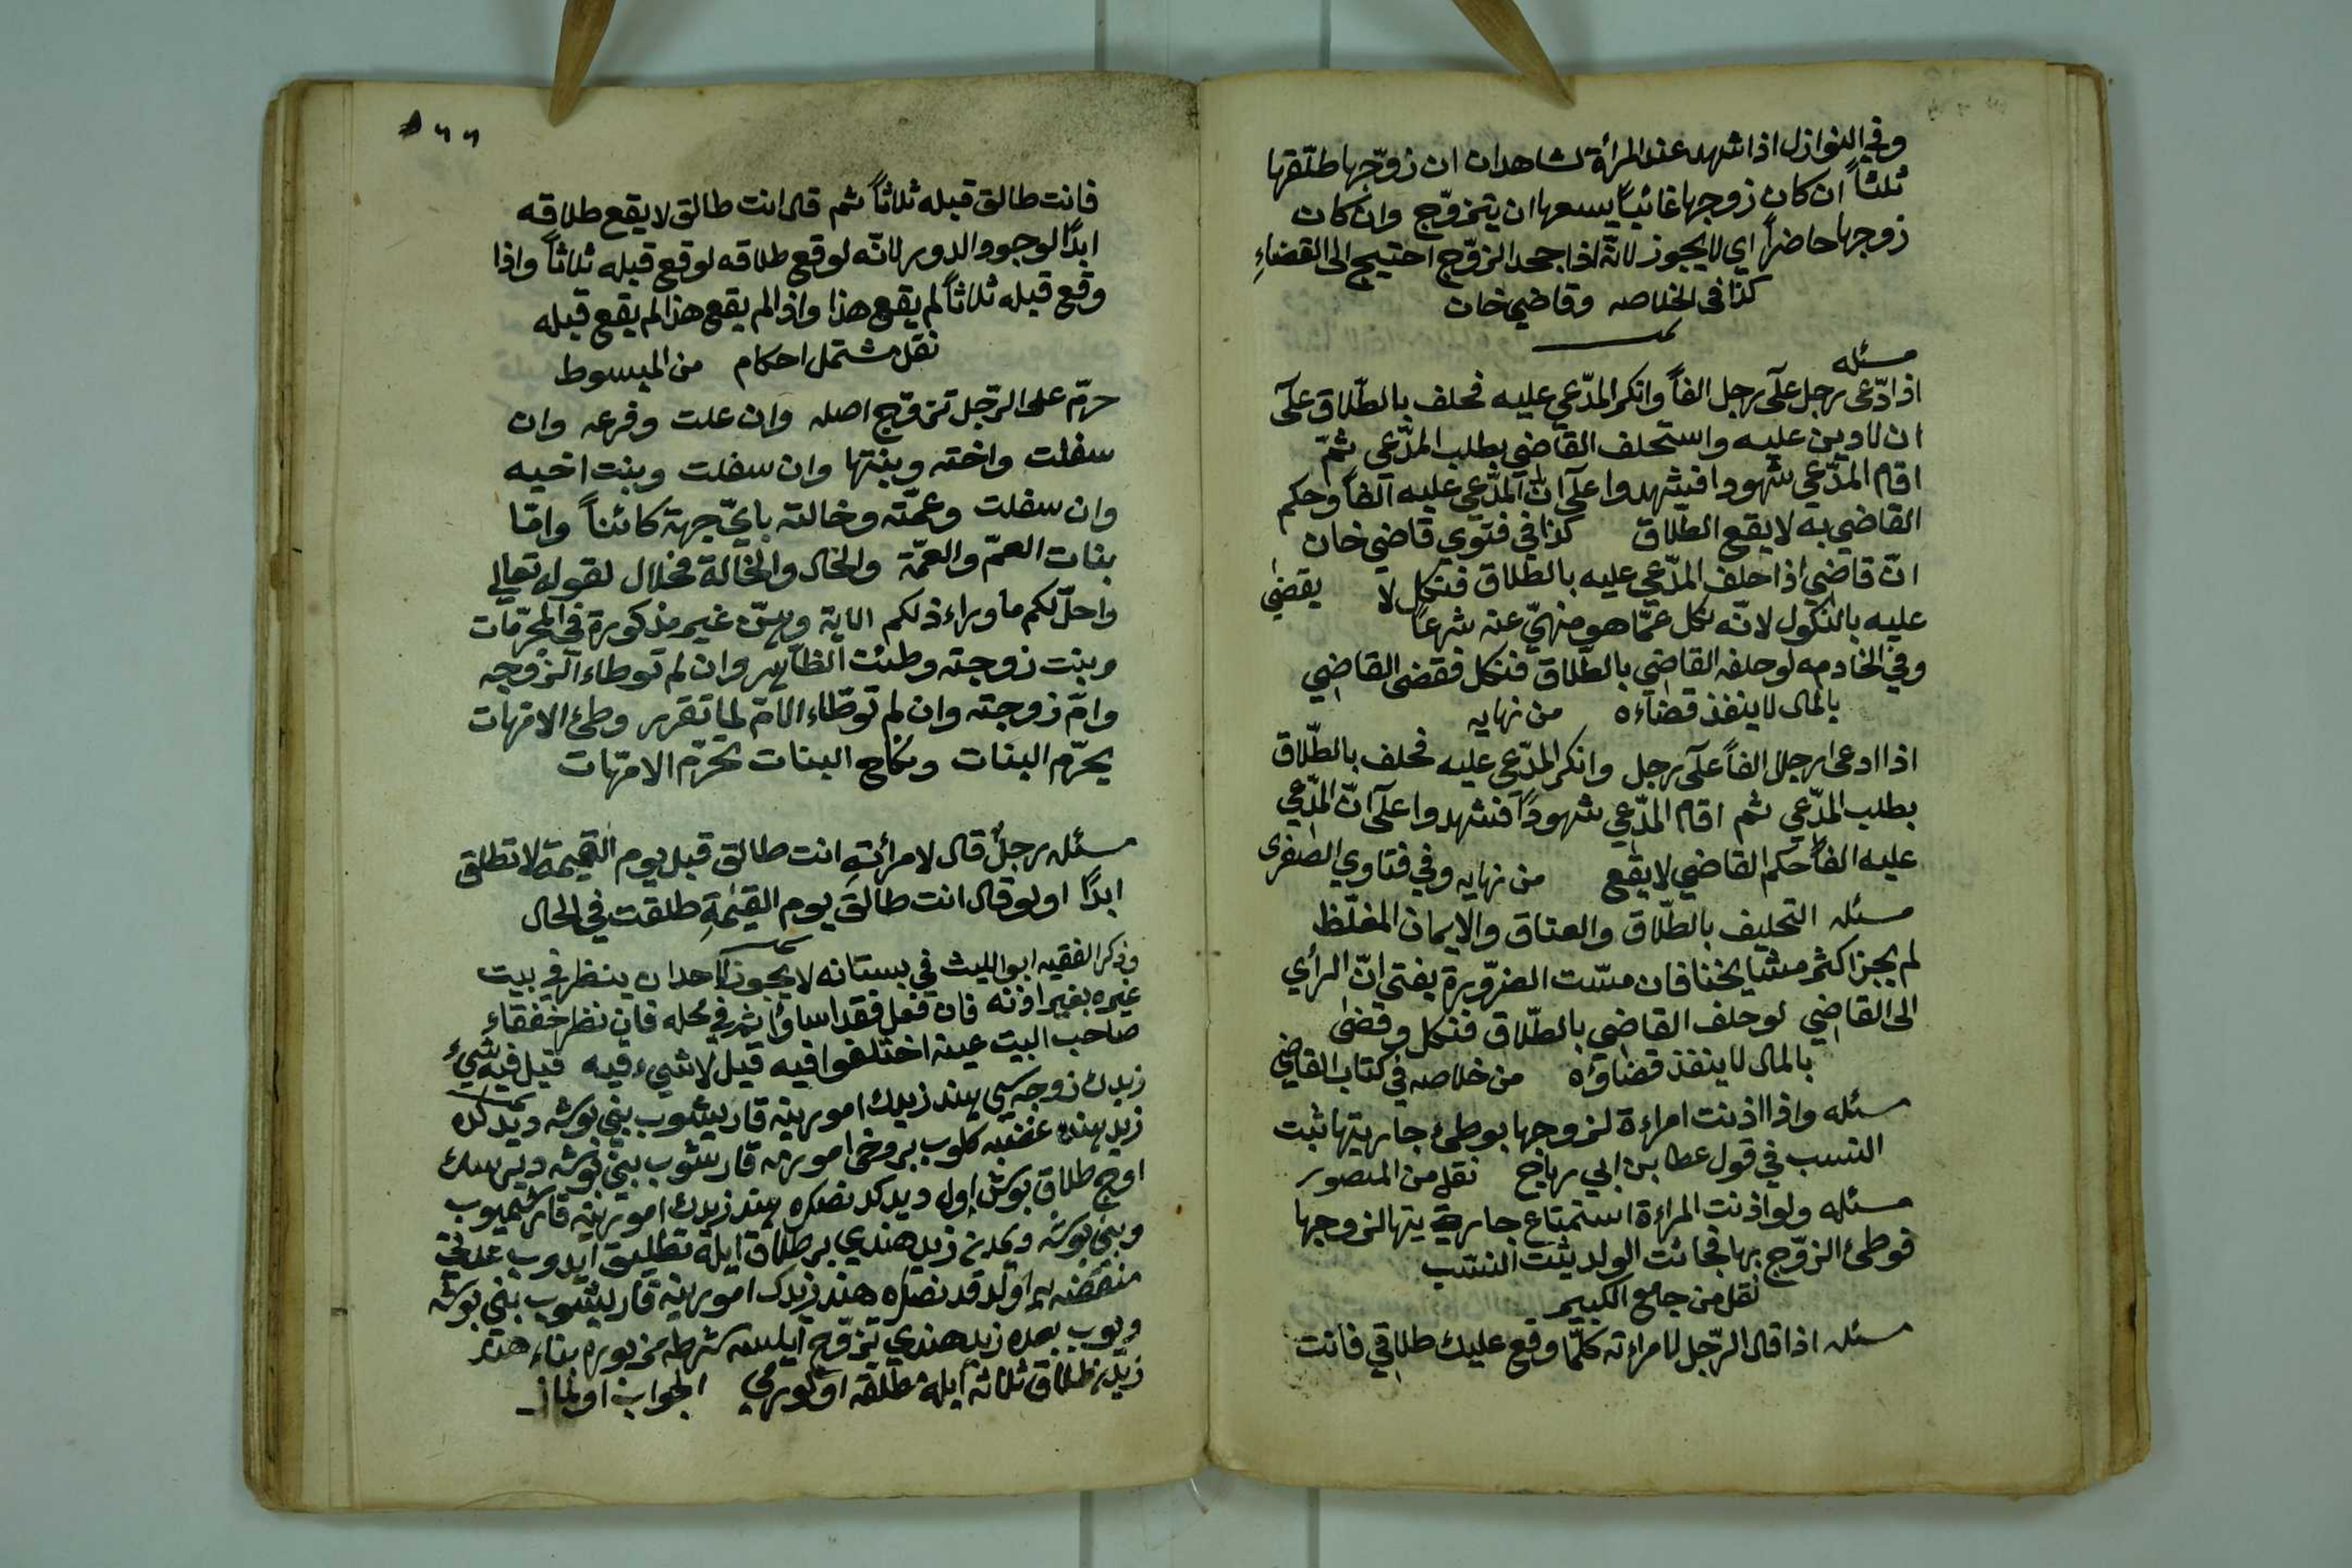 وفي النوازل اذا شهد عند المرأة لشاهدان ان زوّجها طلّقها
ثلثاً ان كان زوجها غائباً يسعها ان يتزوّج وان كان
زوجها حاضراً اي لا يجوز لانّه اذا جحد الزوّج احتيج الى القضاءِ
كذا فى الخلاصه وقاضي خان
مسئله
اذا ادّعى رجل على رجل الفاً وانكر المدّعي عليه فحلف بالطّلاق على
ان لا دين عليه واستحلف القاضي بطلب المدّعى ثمّ
اقام المدّعي شهودا فيشهدوا على انّ المدّعي عليه الفاً وحكم
القاضي به لا يقع الطّلاق كذا في فتوي قاضي خان
انّ قاضي اذا حلف المدّعي عليه بالطّلاق فنكل لا يقضي
عليه بالنكول لانّه نكل عمّا هو منهيّ عنه شرعاً
وفي الخادمه لو حلفه القاضي بالطّلاق فنكل فقضى القاضي
بالمال لا ينفذ قضاءه من نهايه
اذا ادعى رجل الفاً على رجل وانكر المدّعى عليه فحلف بالطّلاق
بطلب المدّعي ثم اقام المدّعي شهوداً فشهدوا على انّ المدّعي
عليه الفاً حكم القاضي لا يقع من نهايه وفي فتاوي الصغرى
مسئله التحليف بالطّلاق والعتاق والايمان المغلّظ
لم يجز اكثر مشايخنا فان مسّت الضرّورة يفتى انّ الرأي
الى القاضي لو حلف القاضي بالطّلاق فنكل وقضى
بالمال لا ينفذ قضاؤه من خلاصه في كتاب القاضي
مسئله واذا اذنت امراءة لزوجها بوطئ جاريتها ثبت
النسب في قول عطا بن ابي رباح نقل من المنصور
مسئله ولو اذنت المراءة استمتاع جاريتها لزوجها
فوطئ الزوّج بها فجائت الولد يثبت النسب
نقل من جامع الكبير
مسئله اذا قال الرّجل لامراءته كلّما وقع عليك طلاقي فانت
٥٦٦
فانت طالق قبله ثلاثاً ثم قال انت طالق لا يقع طلاقه
ابداً لوجود الدور لانّه لو وقع طلاقه لوقع قبله ثلاثاً واذا
وقع قبله ثلاثاً لم يقع هذا واذا لم يقع هذا لم يقع قبله
نقل مشتمل احكام من المبسوط
حرّم على الرّجل تزوّج اصله وان علت وفرعه وان
سفلت واخته وبنتها وان سفلت وبنت اخيه
وان سفلت وعمّته وخالته بايّ جهة كائناً وامّا
بنات العمّ والعمّة والخال والخالة فحلال لقوله تعالى
واحلّ لكم ما وراء ذلكم الاية وهنّ غير مذكورة في المحرّمات
وبنت زوجته وطئت وان لم توطاء الزوجه
وامّ زوجته وان لم توطّاء الامّ لما تقرر وطئ الامّهات
يحرّم البنات ونكاح البنات تحرّم الامّهات
مسئله رجلٌ قال لامرأته انت طالق قبل يوم القيمة لا تطلق
ابداً او لو قال انت طالق يوم القيمةِ طلقت في الحال
وذكر الفقيه ابو الليث في بستانه لا يجوز لاحد ان ينظر في بيت
غيره بغير اذنه فان فعل فقد اساؤ اثم في محله فان نظر ففقاء
صاحب البيت عينه اختلفوا فيه قيل لا شيء فيه قيل فيه شيء
زيدك زوجه سي هند زيدك امورينه قاريشوب بني بوشه ديدكده
زيد هنده غضبه كلوب بر وخى امورمه قارشوب بني بوشه ديرسك
اوچ طلاق بوش اول ديدكدنصكره هند زيدك امورينه قارشميوب
وبني بوشه ديمدن زيد هندي بر طلاق ايله تطليق ايدوب عدتي
منقضيه اولدقدنصكره هند زيدك امورينه قاريشوب بني بوشه
ديوب بعده زيد هندي تزوّج ايلسه شرط مزبوره بناء هند
زيدن طلاق ثلاثه ايله مطلقه اولورمي الجواب اولماز